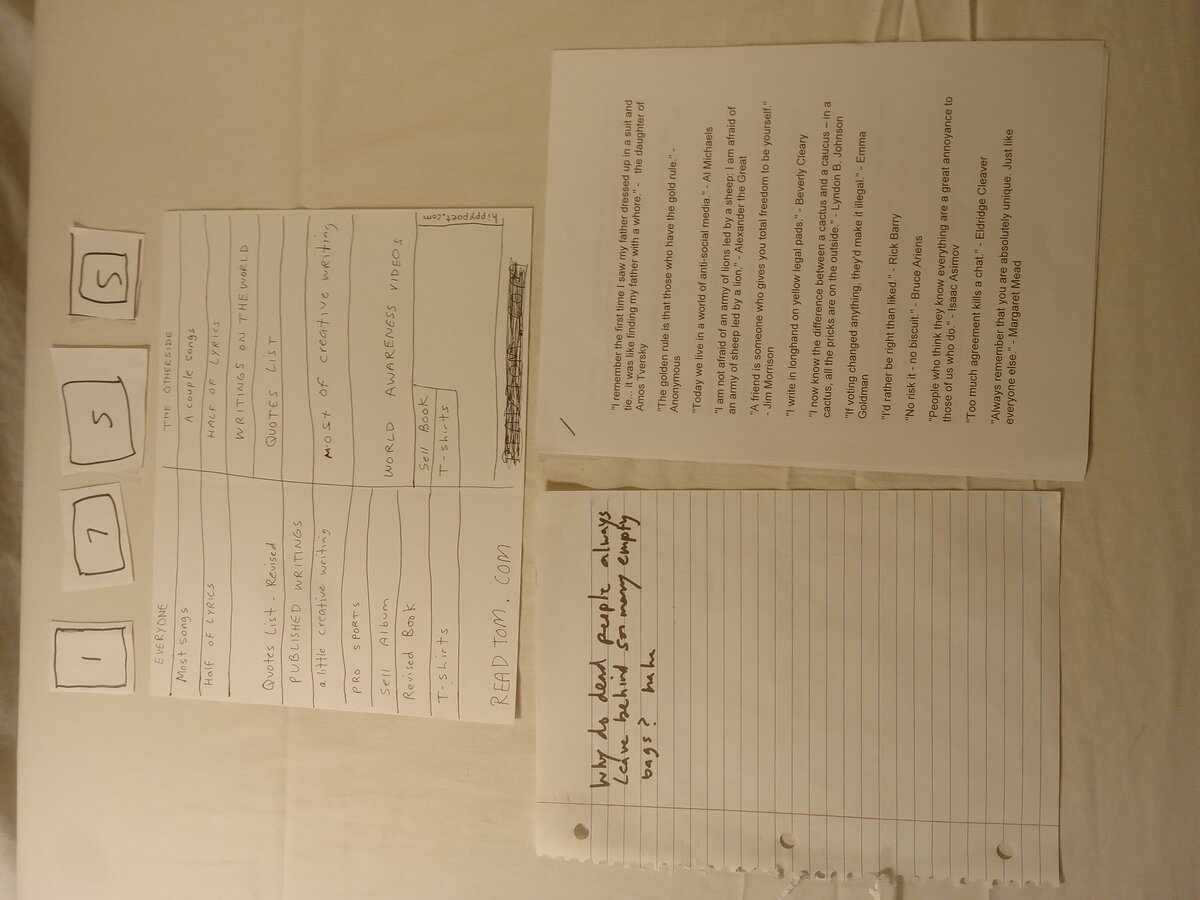 1
7
5
5
EVERYONE
Most Songs
Half of LYRICS
Quotes List - Revised
PUBLISHED WRITINGS
a little creative writing
PRO SPORTS
Sell Album
Revised Book
T-shirts
READTOM.COM
THE OTHERSIDE
A couple songs
HALF OF LYRICS
WRITINGS ON THE WORLD
QUOTES LIST
MOST OF creative writing
WORLD AWARENESS VIDEOS
Sell BOOK
T-shirts
hippypoet.com
Why do dead people always
Leave behind so many empty
bags? haha
"I remember the first time I saw my father dressed up in a suit and
tie... it was like finding my father with a whore." - the daughter of
Amos Tversky
"The golden rule is that those who have the gold rule." -
Anonymous
"Today we live in a world of anti-social media." - Al Michaels
"I am not afraid of an army of lions led by a sheep; I am afraid of
an army of sheep led by a lion." - Alexander the Great
"A friend is someone who gives you total freedom to be yourself."
- Jim Morrison
"I write in longhand on yellow legal pads." - Beverly Cleary
"I now know the difference between a cactus and a caucus – in a
cactus, all the pricks are on the outside." - Lyndon B. Johnson
"If voting changed anything, they'd make it illegal." - Emma
Goldman
"I'd rather be right than liked." - Rick Barry
"No risk it - no biscuit." - Bruce Ariens
"People who think they know everything are a great annoyance to
those of us who do." - Isaac Asimov
"Too much agreement kills a chat." - Eldridge Cleaver
"Always remember that you are absolutely unique. Just like
everyone else." - Margaret Mead